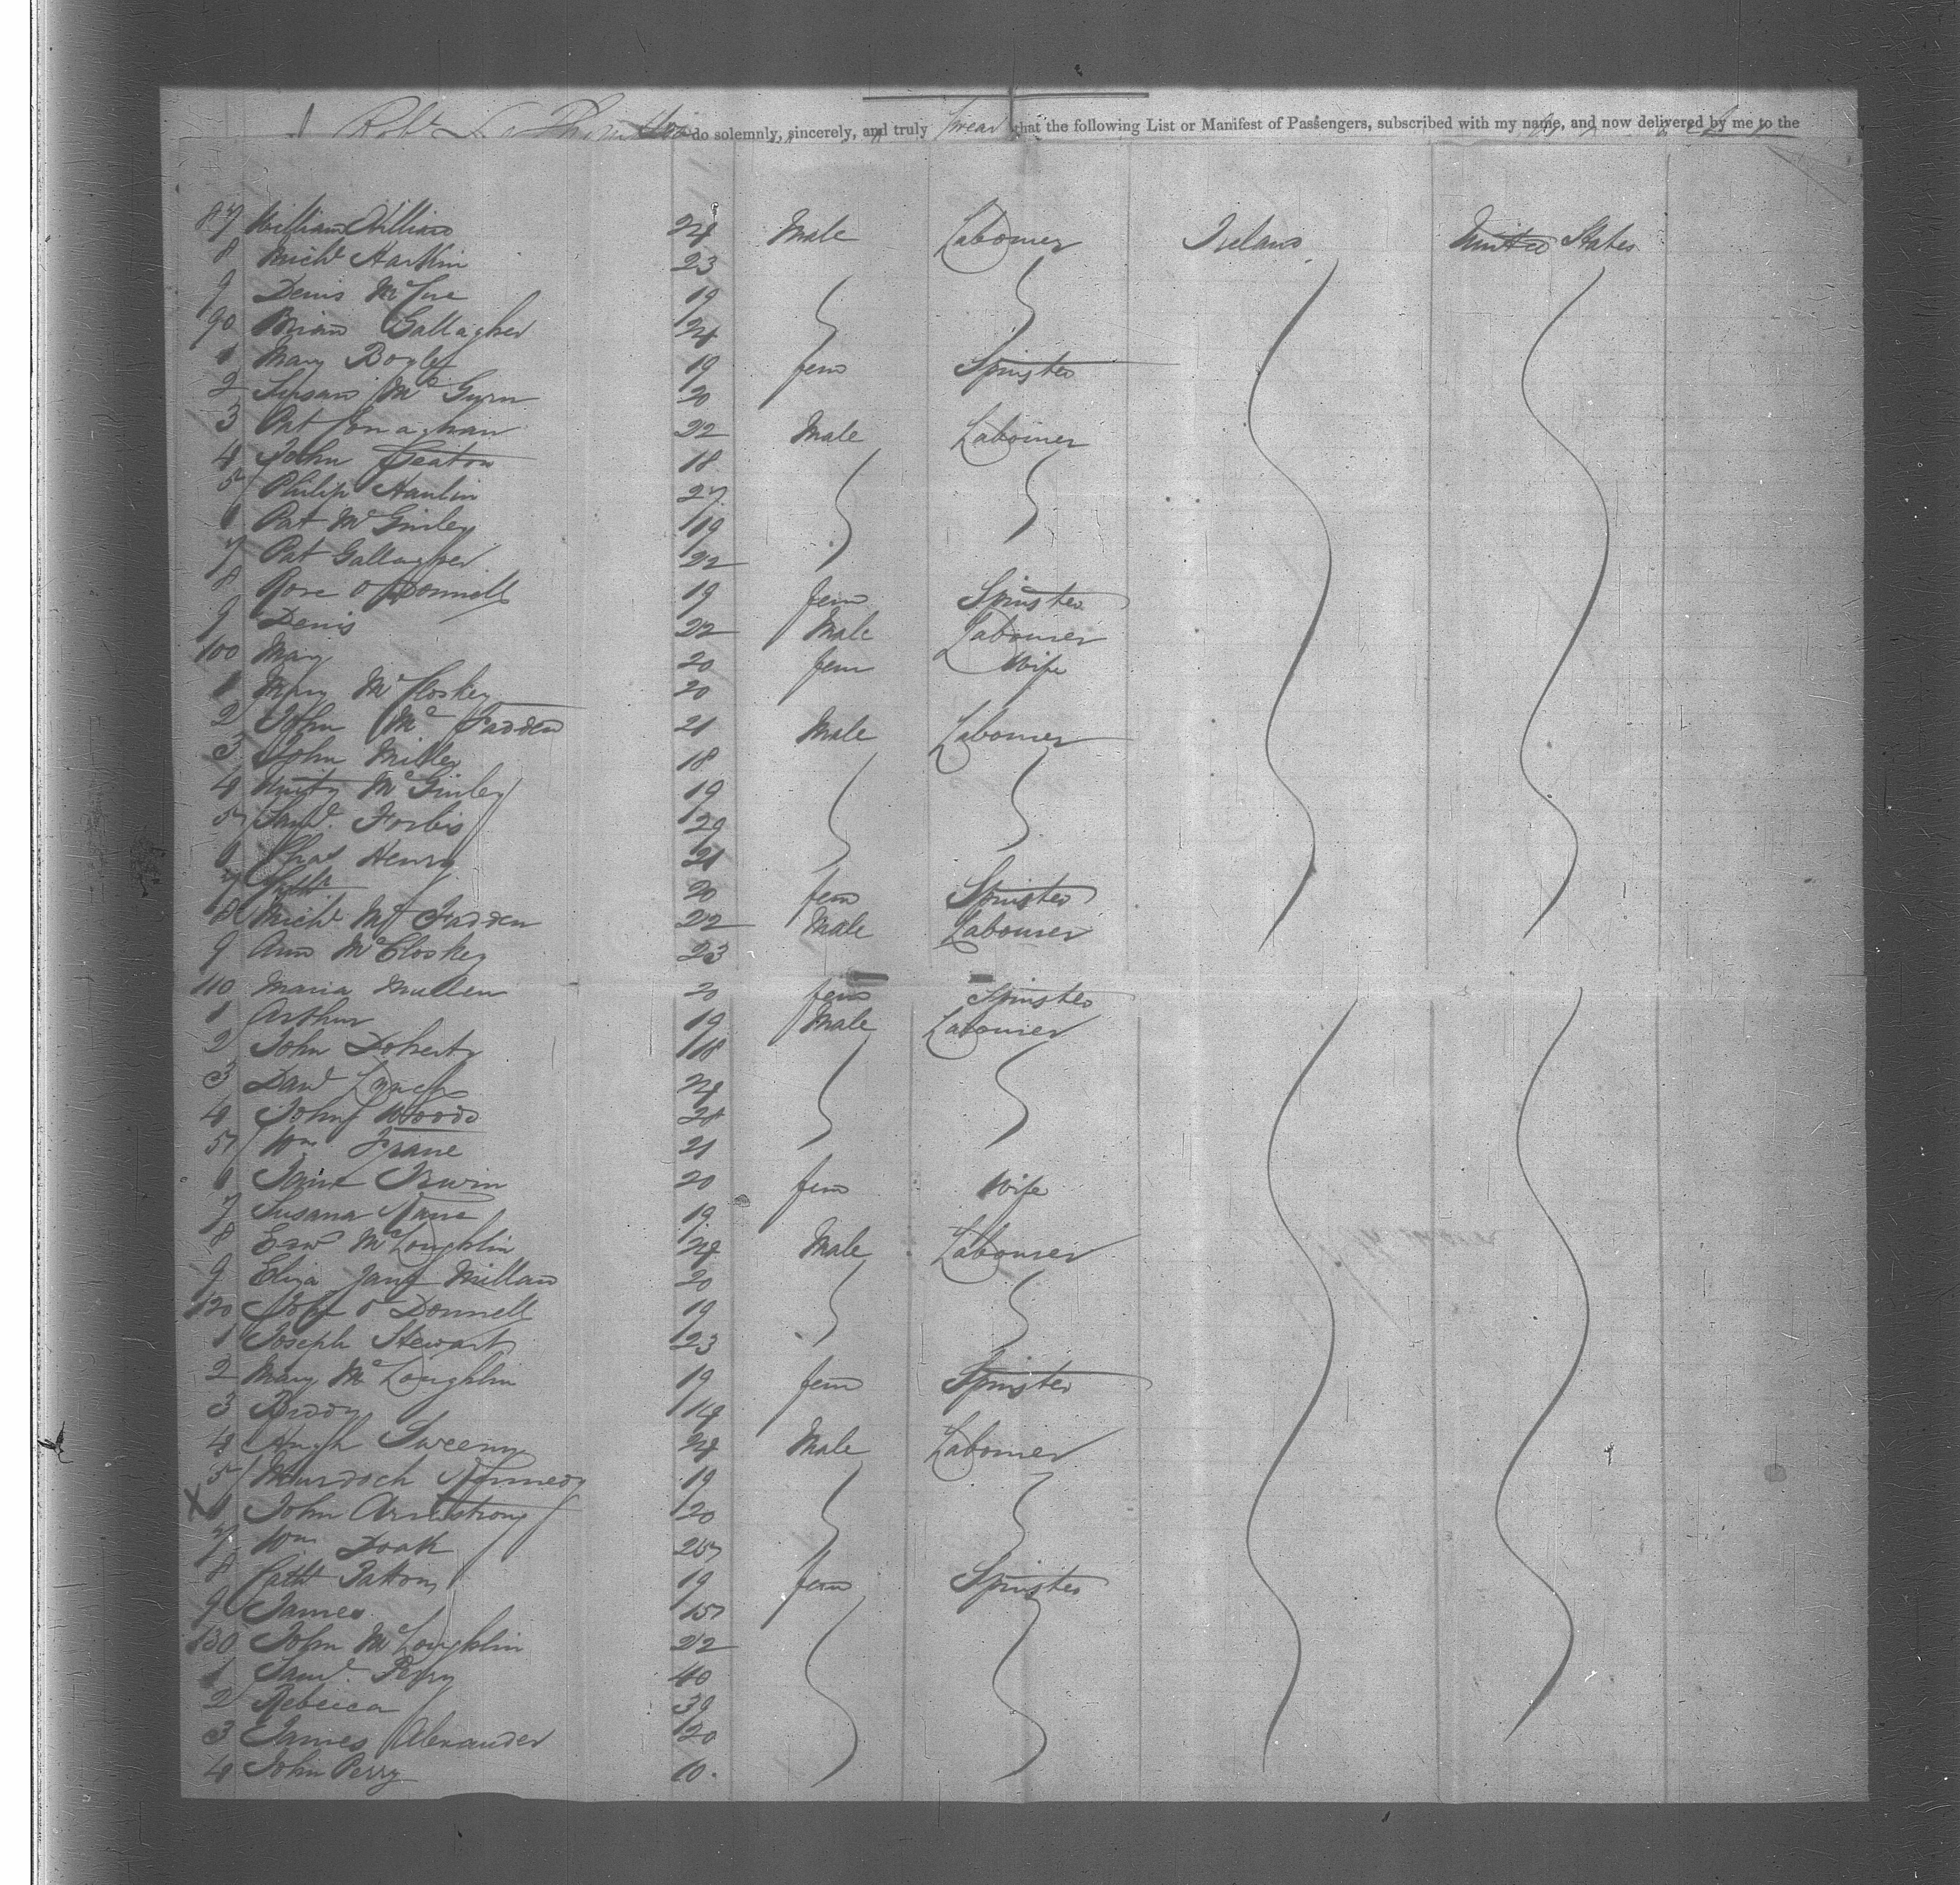 I Robt do solemnly, sincerely, and truly swear that the following List or Manifest of Passengers, subscribed with my name, and now delivered by me to the
87 William 24 Male Labourer Ireland United States
8 Michl Harkin 23
9 Denis McCue 19
90 Brian Gallagher 24
1 Mary Boyle 19 fem Spinster
2 Susan McGurn 20
3 Pat Conaghan 22 Male Labourer
4 John 18
5 Philip Hanlin 27
6 Pat McGinley 19
7 Pat Gallagher 22
8 Rose O'Donnell 19 fem Spinster
9 Denis 22 Male Labourer
100 Mary 20 fem Wife
1 Mary McCloskey 20
2 John McFadden 21 Male Labourer
3 John Miller 18
4 Unity McGinley 19
5 Saml Forbis 29
6 Chas Henry 21
7 20 fem Spinster
8 Michl McFadden 22 Male Labourer
9 Ann McCloskey 23
110 Maria Mullen 20 fem Spinster
1 Arthur 19 Male Labourer
2 John Doherty 18
3 Danl Lynch 24
4 John Woods
5 Wm 21
6 Jane Irwin 20 fem Wife
7 Susana 19
8 Edw McLoughlin 24 Male Labourer
9 Eliza Jane Millan 20
120 O'Donnell 19
1 Joseph Stewart 23
2 Mary McLoughlin 19 fem Spinster
3 Biddy 14
4 Hugh Sweeny 24 Male Labourer
5 Murdoch Kennedy 19
X 6 John Armstrong 20
7 Wm Doak 25
8 Cath Patton 19 fem Spinster
9 James 15
130 John McLoughlin 22
1 Saml Perry 40
2 Rebecca 39
3 James Alexander 20
4 John Perry 10